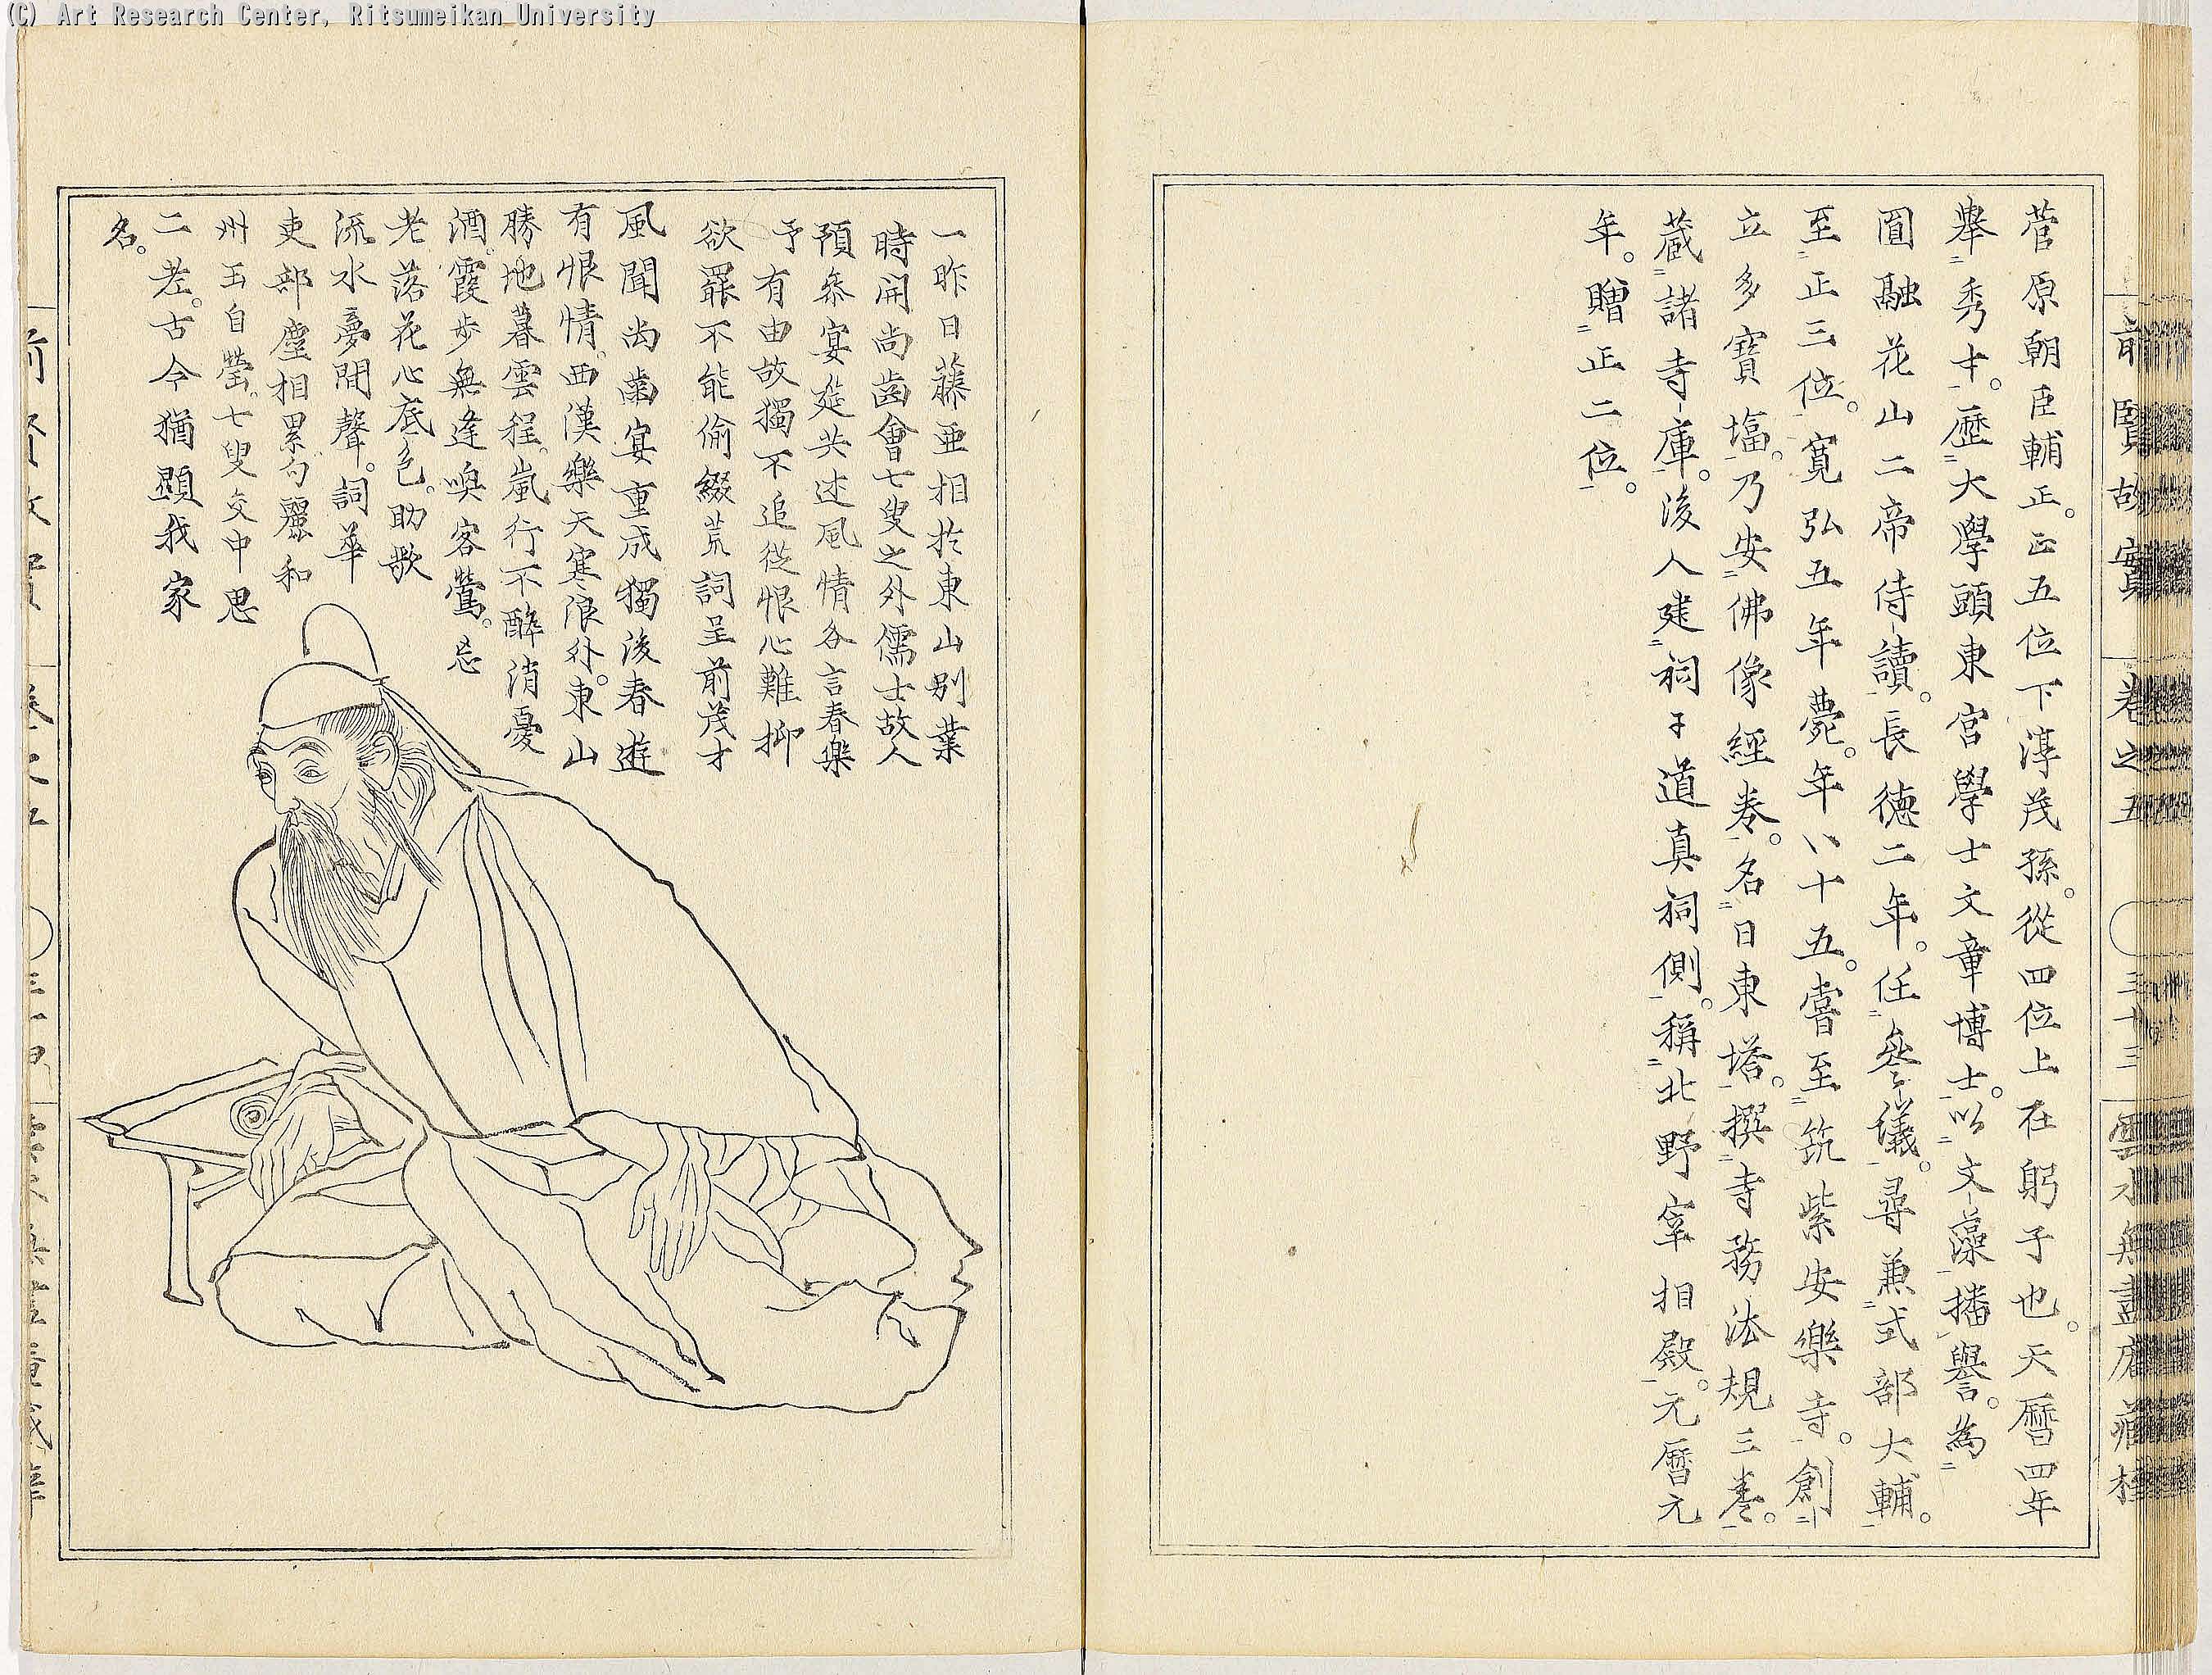 (C) Art Research Center, Ritsumeikan University
前賢故實 卷之五 三十三 雲水無盡庵藏
菅原朝臣輔正。正五位下淳茂孫。從四位上在躬子也。天曆四年
舉秀才。歷大學頭東宮學士文章博士。以文藻播譽。為
圓融花山二帝侍讀。長德二年。任參議。尋兼式部大輔。
至正三位。寬弘五年薨。年八十五。嘗至筑紫安樂寺。創
立多寶塔。乃安佛像經卷。名曰東塔。撰寺務法規三卷。
藏諸寺庫。後人建祠于道真祠側。稱北野宰相殿。元曆元
年。贈正二位。
一昨日藤亞相於東山別業
時開尚齒會七叟之外儒士故人
預參宴莚共述風情各言春樂
予有由故獨不追從恨心難抑
欲罷不能偷綴荒詞呈前茂才
風聞尚齒宴重成獨後春遊
有恨情。西漢樂天寒浪外。東山
勝地暮雲程。嵐行不醉消憂
酒。霞步無逢喚客鶯。忌
老落花心底色。助歌
流水夢間聲。詞華
吏部塵相累。句麗和
州玉自瑩。七叟交中思
二老。古今猶顕我家
名。
前賢故實 卷之五